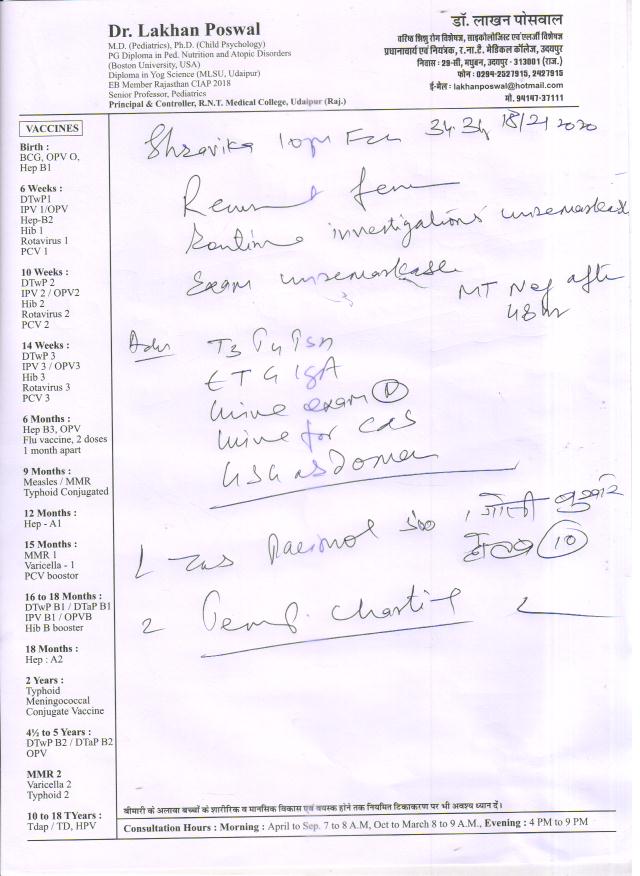 Dr. Lakhan Poswal
M.D. (Pediatrics), Ph.D. (Child Psychology)
PG Diploma in Ped. Nutrition and Atopic Disorders
(Boston University, USA)
Diploma in Yog Science (MLSU, Udaipur)
EB Member Rajasthan CIAP 2018
Senior Professor, Pediatrics
Principal & Controller, R.N.T. Medical College, Udaipur (Raj.)
डॉ. लाखन पोसवाल
वरिष्ठ शिशु रोग विशेषज्ञ, साइकोलोजिस्ट एवं एलर्जी विशेषज्ञ
प्रधानाचार्य एवं नियंत्रक, र.ना.टै. मेडिकल कॉलेज, उदयपुर
निवास : 29-सी, मधुबन, उदयपुर - 313001 (राज.)
फोन : 0294-2527915, 2427915
ई-मेल : lakhanposwal@hotmail.com
मो. 94147-37111
VACCINES
Birth :
BCG, OPV O,
Hep B1
6 Weeks :
DTwP1
IPV 1/OPV
Hep-B2
Hib 1
Rotavirus 1
PCV 1
10 Weeks :
DTwP 2
IPV 2 / OPV2
Hib 2
Rotavirus 2
PCV 2
14 Weeks :
DTwP 3
IPV 3 / OPV3
Hib 3
Rotavirus 3
PCV 3
6 Months :
Hep B3, OPV
Flu vaccine, 2 doses
1 month apart
9 Months :
Measles / MMR
Typhoid Conjugated
12 Months :
Hep - A1
15 Months :
MMR 1
Varicella - 1
PCV boostor
16 to 18 Months :
DTwP B1 / DTaP B1
IPV B1 / OPVB
Hib B booster
18 Months :
Hep : A2
2 Years :
Typhoid
Meningococcal
Conjugate Vaccine
4½ to 5 Years :
DTwP B2 / DTaP B2
OPV
MMR 2
Varicella 2
Typhoid 2
10 to 18 TYears :
Tdap / TD, HPV
Shravika 34.34 18/2/2020
Routine investigations
Exam
MT Neg after
48 hr
Adv T3 T4 TSH
TTG IgA
Urine exam
Urine for C&S
USG abdomen
1 500 गोली बुखार
10
2 Temp. charting
बीमारी के अलावा बच्चों के शारीरिक व मानसिक विकास एवं वयस्क होने तक नियमित टिकाकरण पर भी अवश्य ध्यान दें।
Consultation Hours : Morning : April to Sep. 7 to 8 A.M, Oct to March 8 to 9 A.M., Evening : 4 PM to 9 PM